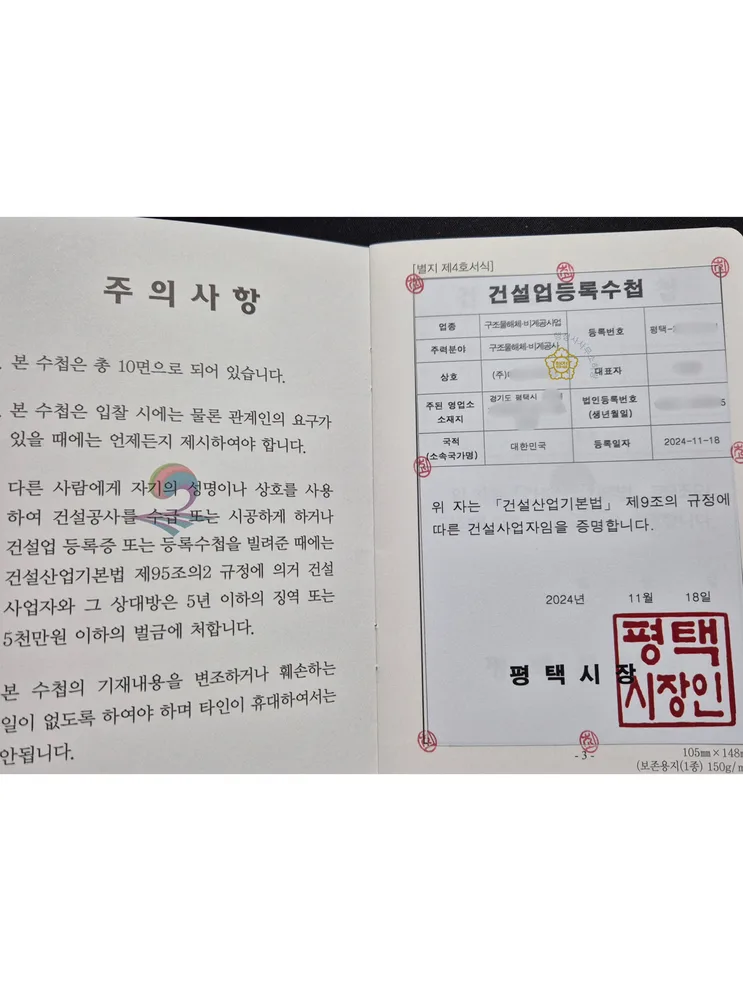 주 의 사 항
. 본 수첩은 총 10면으로 되어 있습니다.
. 본 수첩은 입찰 시에는 물론 관계인의 요구가
있을 때에는 언제든지 제시하여야 합니다.
다른 사람에게 자기의 성명이나 상호를 사용
하여 건설공사를 수급 또는 시공하게 하거나
건설업 등록증 또는 등록수첩을 빌려준 때에는
건설산업기본법 제95조의2 규정에 의거 건설
사업자와 그 상대방은 5년 이하의 징역 또는
5천만원 이하의 벌금에 처합니다.
본 수첩의 기재내용을 변조하거나 훼손하는
일이 없도록 하여야 하며 타인이 휴대하여서는
안됩니다.
[별지 제4호서식]
건설업등록수첩
업종 구조물해체·비계공사업 등록번호 평택-
주력분야 구조물해체·비계공사
상호 (주) 대표자
주된 영업소 소재지 경기도 평택시 법인등록번호 (생년월일) 5
국적 (소속국가명) 대한민국 등록일자 2024-11-18
위 자는 「건설산업기본법」 제9조의 규정에
따른 건설사업자임을 증명합니다.
2024년 11월 18일
평 택 시 장
평택
시장인
- 3 -
105㎜×148㎜
(보존용지(1종) 150g/